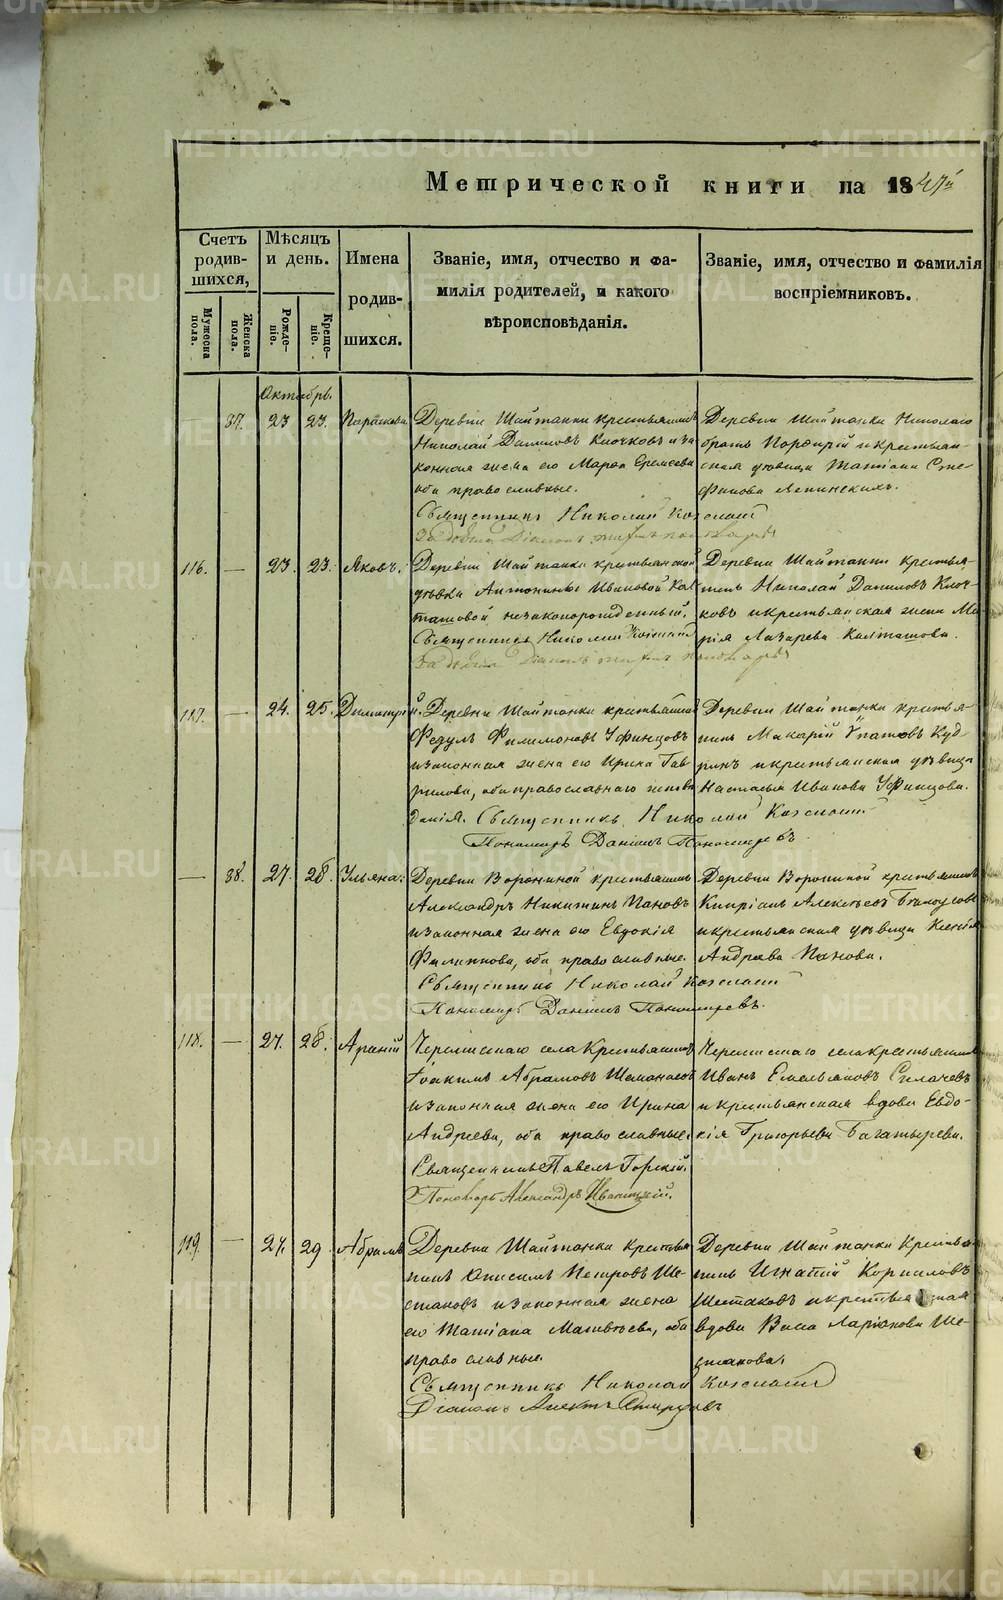 Метрической книги на 1847й
Счетъ родив-шихся,
Мужеска пола.
Женска пола.
Мѣсяцъ и день.
Рожде-ніе.
Креще-ніе.
Имена родив-шихся.
Званіе, имя, отчество и фа-
милія родителей, и какого
вѣроисповѣданія.
Званіе, имя, отчество и фамилія
воспріемниковъ.
Октябрь.
— 87. 23 23. Параскева
Деревни Шайтанки крестьянинъ
Николай Даниловъ Клочковъ и за
конная жена его Марѳа Еремѣева
оба православные.
Священникъ Николай
Деревни Шайтанки Николаю
братъ Порфирій и крестьян-
ская дѣвица Татіана Сте-
фанова Лепинскихъ.
116. — 23. 23. Яковъ.
Деревни Шайтанки крестьянской
дѣвки Антонины Ивановой Кал
ташовой незаконорожденный.
Священникъ Николай
Деревни Шайтанки крестья-
нинъ Николай Даниловъ Клоч-
ковъ и крестьянская жена Ма-
рія Лазарева Калташова.
117. — 24. 25. Димитрій.
Деревни Шайтанки крестьянинъ
Федулъ Филимоновъ Уфинцовъ
и законная жена его Ирина Гав
рилова, оба православнаго исповѣ
данія. Священникъ Николай
Пономарь Даніилъ Пономаревъ
Деревни Шайтанки крестья-
нинъ Макарій Ипатовъ Куд-
ринъ и крестьянская дѣвица
Настасья Иванова Уфинцова.
— 88. 27. 28. Ульяна.
Деревни Ворониной крестьянинъ
Александръ Никитинъ Пановъ
и законная жена его Евдокія
Филиппова, оба православные.
Священникъ Николай
Пономарь Даніилъ Пономаревъ.
Деревни Ворониной крестьянинъ
Кипріанъ Алексѣевъ Бѣлоусовъ
и крестьянская дѣвица Ксенія
Андреева Панова.
118. — 27. 28.
села Крестьянинъ
Іоакимъ Абрамовъ
и законная жена его Ирина
Андреева, оба православные.
Священникъ Павелъ Горскій.
Пономарь Александръ Иваницкій.
села крестьянинъ
Иванъ Емельяновъ Силачевъ
и крестьянская вдова Евдо-
кія Григорьева Багатырева.
119. — 27. 29 Абрамъ
Деревни Шайтанки Крестья
нинъ Онисимъ Петровъ Ше-
стаковъ и законная жена
его Татіана Матвѣева, оба
православные.
Священникъ Николай
Деревни Шайтанки Крестья
нинъ Игнатій Корниловъ
Шестаковъ и крестьянская
вдова Васса Ларіонова Ше-
стакова.
METRIKI.GASO-URAL.RU